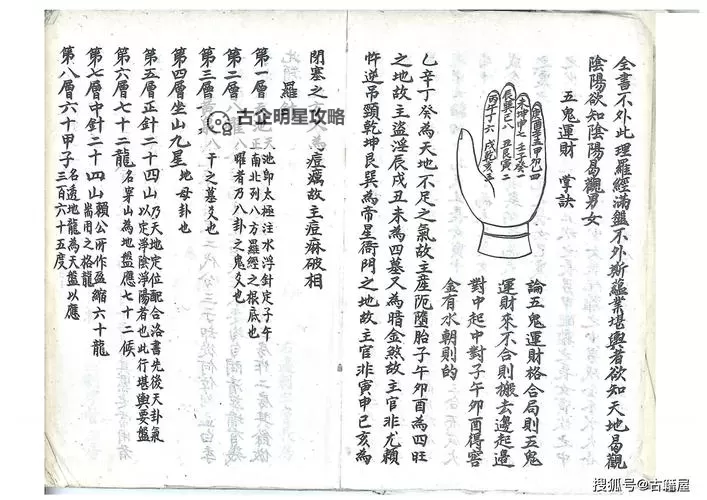 全書不外此理羅經滿盤不外斯蘊業堪輿者欲知天地曷觀
陰陽欲知陰陽曷觀男女
五鬼運財 掌訣
論五鬼運財格合局則五鬼
運財來不合則搬去邊起邊
對中起中對子午卯酉得客
金有水朝則的
乙辛丁癸為天地不足之氣故主產阨墮胎子午卯酉為四旺
之地故主盜淫辰戌丑未為四墓又為暗金煞故主官非尤賴
忤逆吊頸乾坤艮巽為帝星衙門之地故主官非寅申巳亥為
閉塞之
為痘癘故主痘痳破相
羅
第一層 天池即太極注水浮針定子午
第二層 正南北列八方羅經之根底也
曜者乃八卦之鬼爻也
第三層
干之墓爻也
第四層坐山九星 地母卦也
第五層正針二十四山 乃天地定位配合洛書先後天卦氣
以定淨陰淨陽者也此行堪輿要盤
第六層七十二龍 名穿山為地盤應七十二候
第七層中針二十四山 賴公所作盈縮六十龍
耑用之格龍
第八層六十甲子 名透地龍為天盤以應
三百六十五度
古企明星攻略
搜狐号@古籍屋